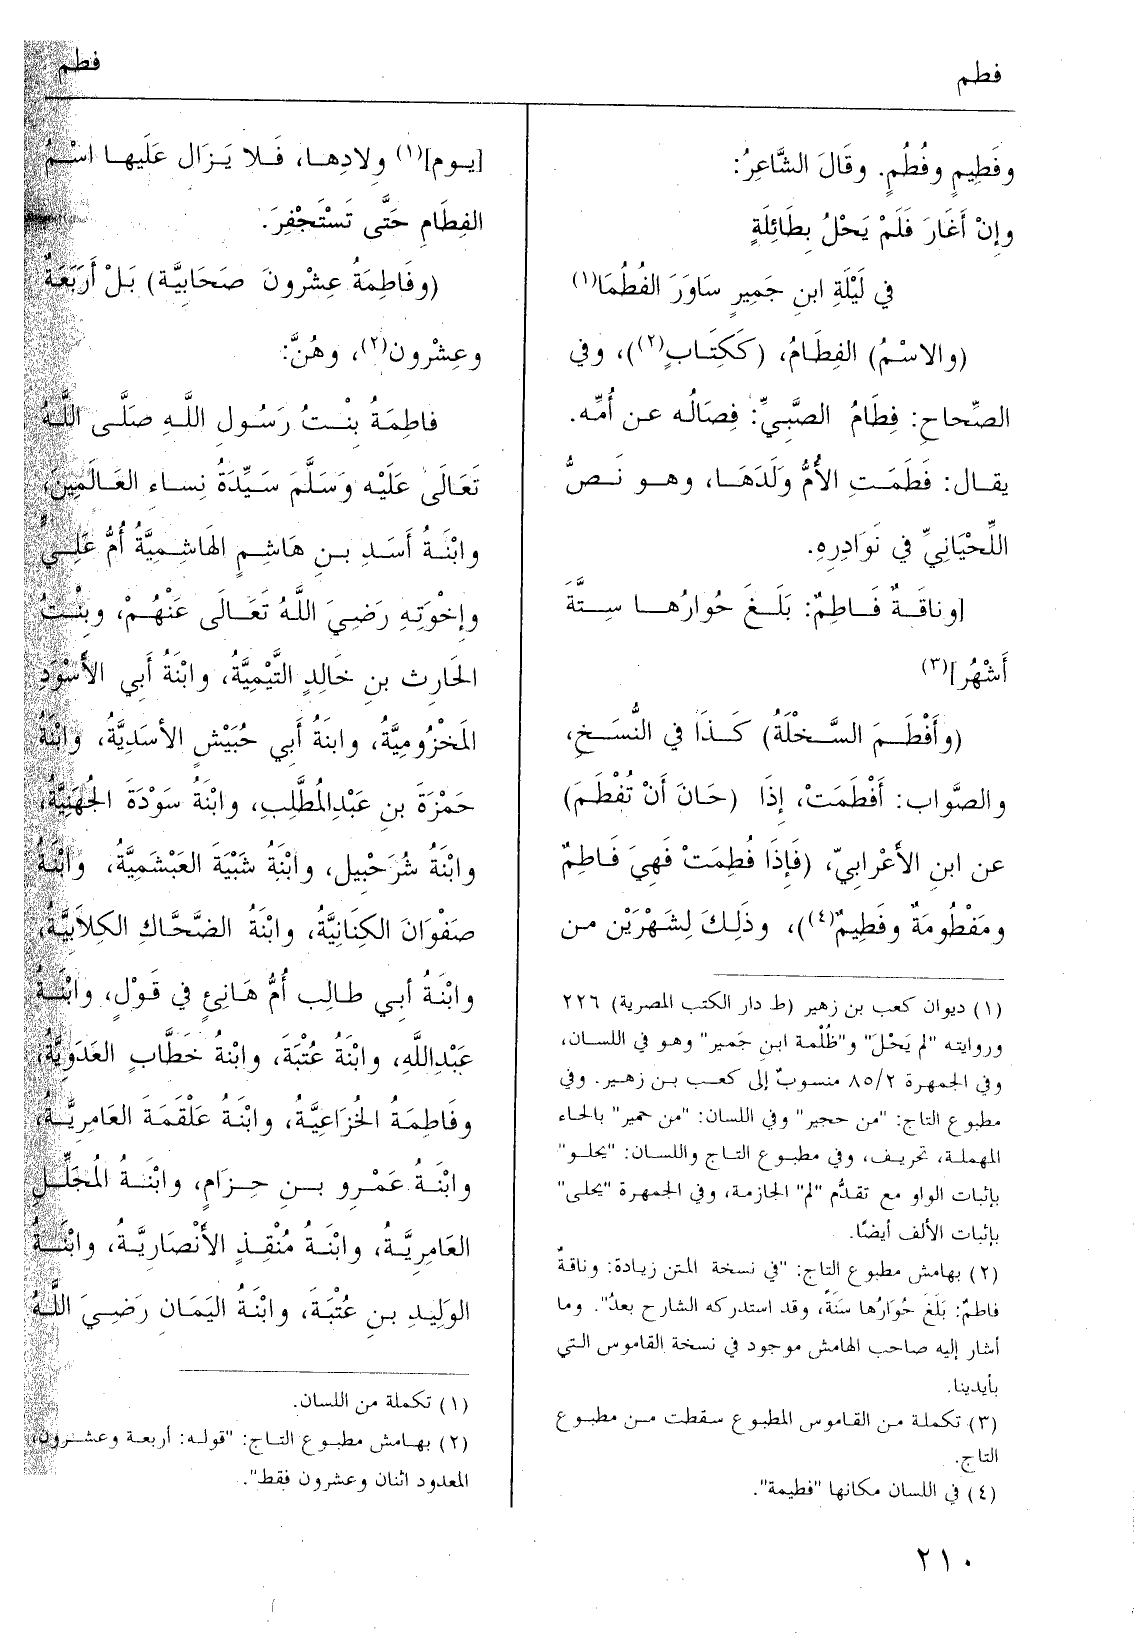 فطم
فطم
وفَطِيمٍ وفُطُمٍ. وقَالَ الشَّاعِرُ:
وإنْ أَغَارَ فَلَمْ يَحْلُ بِطَائِلَةٍ
في لَيْلَةِ ابنِ جَمِيرٍ سَاوَرَ الفُطُمَا(١)
(والاسْمُ) الفِطَامُ، (كَكِتَابٍ(٢))، وفي
الصِّحاحِ: فِطَامُ الصَّبِيِّ: فِصَالُه عن أُمِّه.
يقال: فَطَمَتِ الأُمُّ ولَدَهَا، وهو نَصُّ
اللِّحْيَانِيِّ في نَوَادِرِهِ.
[وناقَةٌ فَاطِمٌ: بَلَغَ حُوارُها سِتَّةَ
أَشْهُر](٣)
(وأَفْطَمَ السَّخْلَةُ) كَذَا في النُّسَخِ،
والصَّواب: أَفْطَمَتْ، إِذَا (حَانَ أَنْ تُفْطَمَ)
عن ابنِ الأعْرابيّ، (فَإِذَا فُطِمَتْ فَهِيَ فَاطِمٌ
ومَفْطُومَةٌ وفَطِيمٌ(٤))، وذَلِكَ لِشَهْرَيْن من
(١) ديوان كعب بن زهير (ط دار الكتب المصرية) ٢٢٦
وروايته "لم يَحْلَ" و"ظُلْمة ابنِ جَمير" وهو في اللسان،
وفي الجمهرة ٨٥/٢ منسوبٌ إلى كعب بن زهير. وفي
مطبوع التاج: "من حجير" وفي اللسان: "من حمير" بالحاء
المهملة، تحريف، وفي مطبوع التاج واللسان: "يحلو"
بإثبات الواو مع تقدُّم "لم" الجازمة، وفي الجمهرة "يحلى"
بإثبات الألف أيضًا.
(٢) بهامش مطبوع التاج: "في نسخة المتن زيادة: وناقةٌ
فاطمٌ: بَلَغَ حُوَارُها سَنَةً، وقد استدركه الشارح بعدُ". وما
أشار إليه صاحب الهامش موجود في نسخة القاموس التي
بأيدينا.
(٣) تكملة من القاموس المطبوع سقطت من مطبوع
التاج.
(٤) في اللسان مكانها "فطيمة".
[يوم](١) وِلادِها، فَلا يَزَال عَلَيها اسْمُ
الفِطَامِ حَتَّى تَسْتَجْفِرَ.
(وفَاطِمَةُ عِشْرونَ صَحَابِيَّة) بَلْ أَرْبَعَةٌ
وعِشْرون(٢)، وهُنَّ:
فاطِمَةُ بِنْتُ رَسُولِ اللَّهِ صَلَّى اللَّهُ
تَعَالَى عَلَيْه وَسَلَّمَ سَيِّدَةُ نِساءِ العَالَمِينَ،
وابْنَةُ أَسَدِ بنِ هَاشِمٍ الهَاشِمِيَّةُ أُمُّ عَلِيٍّ
وإخْوَتِهِ رَضِيَ اللَّهُ تَعَالَى عَنْهُمْ، وبِنْتُ
الحَارِث بنِ خَالِدٍ التَّيْمِيَّةُ، وابْنَةُ أبي الأَسْوَدِ
المَخْزُومِيَّةُ، وابنَةُ أَبي حُبَيْشٍ الأسَدِيَّةُ، وابْنَةُ
حَمْزَةَ بنِ عَبْدِالمُطَّلِبِ، وابْنَةُ سَوْدَةَ الجُهَنِيَّةُ،
وابْنَةُ شُرَحْبِيل، وابْنَةُ شَيْبَةَ العَبْشَمِيَّةُ، وابْنَةُ
صَفْوَانَ الكِنَانِيَّةُ، وابْنَةُ الضَّحَّاكِ الكِلاَبِيَّةُ،
وابْنَةُ أبي طالِب أُمُّ هَانِئٍ في قَوْلٍ، وابْنَةُ
عَبْدِاللَّهِ، وابْنَةُ عُتْبَةَ، وابْنةُ خَطَّابِ العَدَوِيَّةُ،
وفَاطِمَةُ الخُزَاعِيَّةُ، وابْنَةُ عَلْقَمَةَ العَامِرِيَّةُ،
وابْنَةُ عَمْرِو بنِ حِزَامٍ، وابْنَةُ المُجَلِّلِ
العَامِرِيَّةُ، وابْنَةُ مُنْقِذٍ الأَنْصَارِيَّةُ، وابْنَةُ
الوَلِيدِ بنِ عُتْبَةَ، وابْنَةُ اليَمَان رَضِيَ اللَّهُ
(١) تكملة من اللسان.
(٢) بهامش مطبوع التاج: "قوله: أربعة وعشرون،
المعدود اثنان وعشرون فقط".
٢١٠